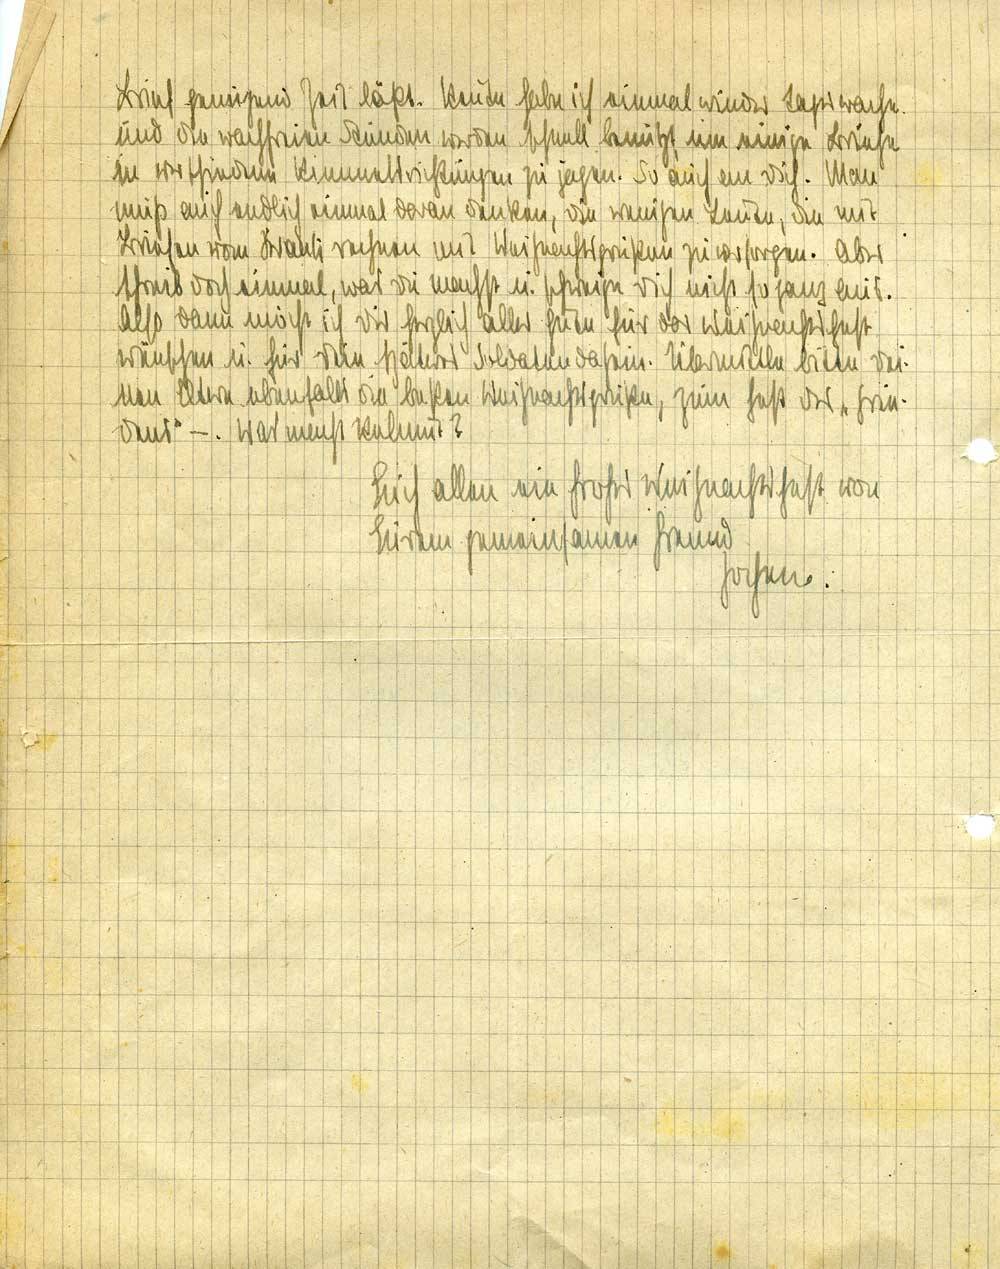 Brief genügend Zeit läßt. Heute habe ich einmal wieder Lagerwache
und die wachfreien Stunden werden schnell benützt, um einige Briefe
in verschiedene Himmelsrichtungen zu jagen. So auch an Dich. Man
muß auch endlich einmal daran denken, die wenigen Leute, die mit
Briefen vom rechnen mit Weihnachtsgrüßen zu versorgen. Aber
schreib doch einmal, was du machst u. schweige Dich nicht so ganz aus.
Also dann möcht ich Dir herzlich alles Gute für das Weihnachtsfest
wünschen u. für Dein späteres Soldatendasein. Übermittle bitte Dei-
nen Eltern ebenfalls die besten Weihnachtsgrüße, zum Fest des „Frie-
dens" —. Was menst Helmut?
Euch allen ein frohes Weihnachtsfest von
Eurem gemeinsamen Freund
Jochen.